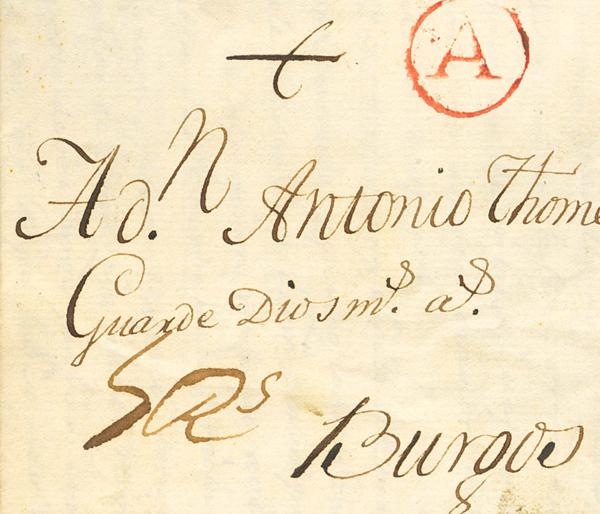 A
A d.n Antonio Thome
Guarde Dios ms. as.
Rs
Burgos